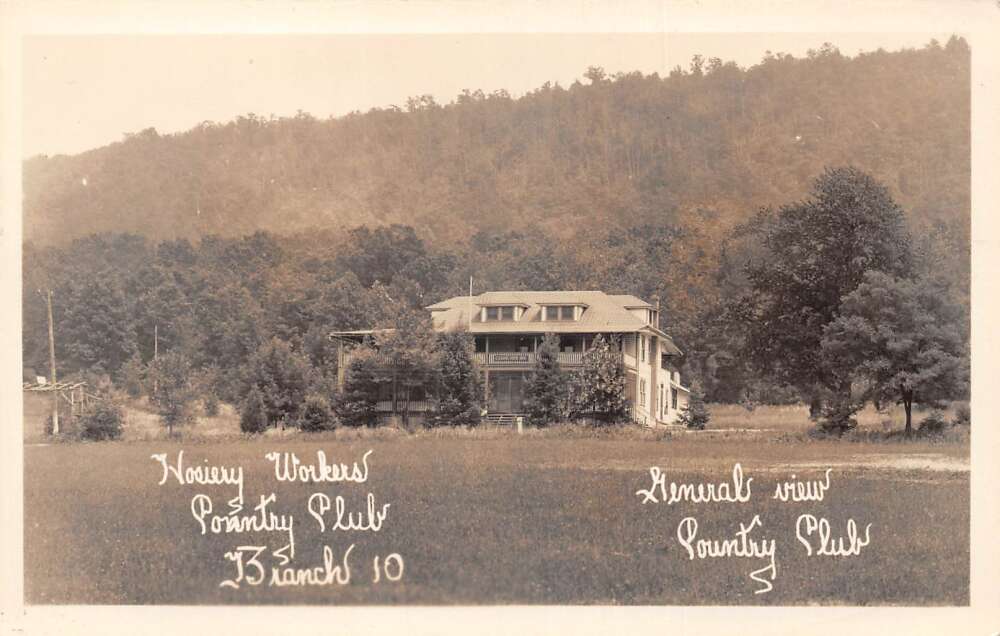 Hosiery Workers
Country Club
Branch 10
General view
Country Club